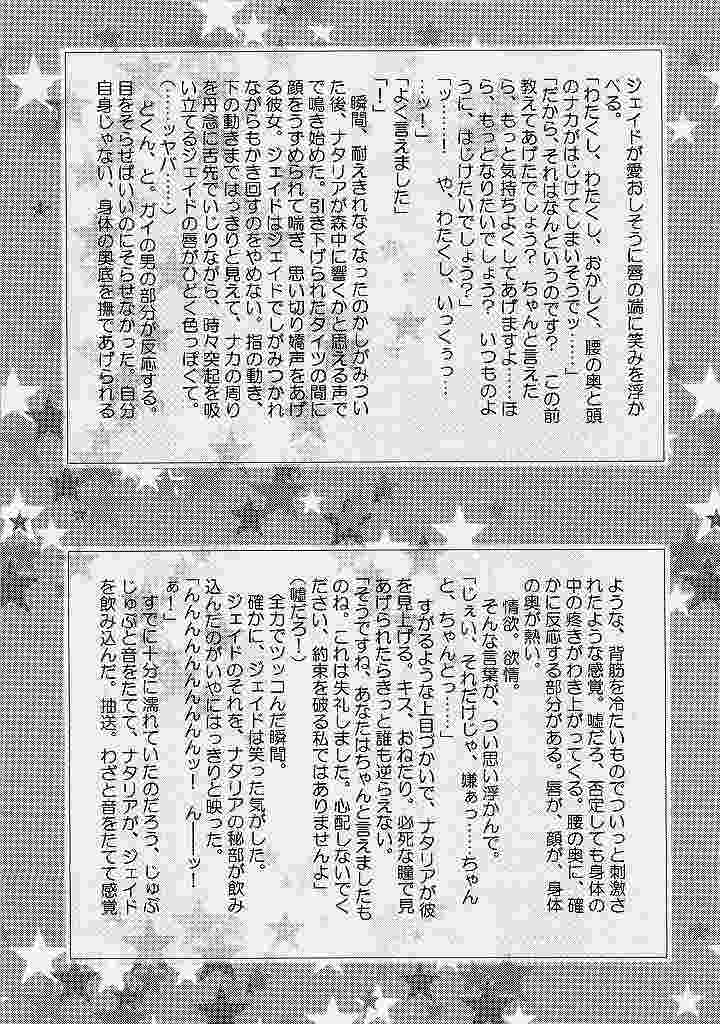 ジェイドが愛おしそうに唇の端に笑みを浮か
べる。
「わたくし、わたくし、おかしく、腰の奥と頭
のナカがはじけてしまいそうでッ……」
「だから、それはなんというのです？　この前
教えてあげたでしょう？　ちゃんと言えた
ら、もっと気持ちよくしてあげますよ……ほ
ら、もっとなりたいでしょう？　いつものよ
うに、はじけたいでしょう？」
「ッ……！　や、わたくし、いっくぅっ…
…ッ！」
「よく言えました」
「！」
瞬間、耐えきれなくなったのかしがみつい
た後、ナタリアが森中に響くかと思える声で
で鳴き始めた。引き下げられたタイツの間に
顔をうずめられて喘ぎ、思い切り嬌声をあげ
る彼女。ジェイドはジェイドでしがみつかれ
ながらもかき回すのをやめない。指の動き、
下の動きまではっきりと見えて、ナカの周り
を丹念に舌先でいじりながら、時々突起を吸
い立てるジェイドの唇がひどく色っぽくて。
（……ッヤバ……）
どくん、と。ガイの男の部分が反応する。
目をそらせばいいのにそらせなかった。自分
自身じゃない、身体の奥底を撫であげられる
ような、背筋を冷たいものでついっと刺激さ
れたような感覚。嘘だろ、否定しても身体の
中の疼きがわき上がってくる。腰の奥に、確
かに反応する部分がある。唇が、顔が、身体
の奥が熱い。
情欲。欲情。
そんな言葉が、つい思い浮かんで。
「じぇい、それだけじゃ、嫌ぁっ……ちゃん
と、ちゃんとっ……」
すがるような上目づかいで、ナタリアが彼
を見上げる。キス、おねだり。必死な瞳で見
あげられたらきっと誰も逆らえない。
「そうですね、あなたはちゃんと言えましたも
のね。これは失礼しました。心配しないでく
ださい、約束を破る私ではありませんよ」
（嘘だろー）
全力でツッコんだ瞬間。
確かに、ジェイドは笑った気がした。
ジェイドのそれを、ナタリアの秘部が飲み
込んだのがいやにはっきりと映った。
「んんんんんんんんんッ！　ん――ッ！
ぁー」
すでに十分に濡れていたのだろう、じゅぷ
じゅぷと音をたてて、ナタリアが、ジェイド
を飲み込んだ。抽送。わざと音をたてて感覚